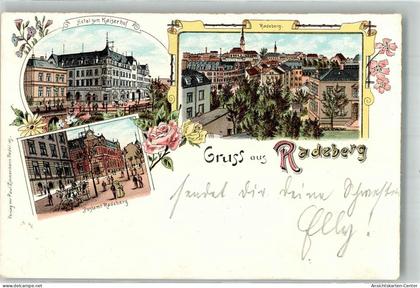 Hotel zum Kaiserhof
Radeberg.
Postamt Radeberg
Gruss aus Radeberg
sendet dir deine Schwester
Elly!
Ansichtskarten-Center